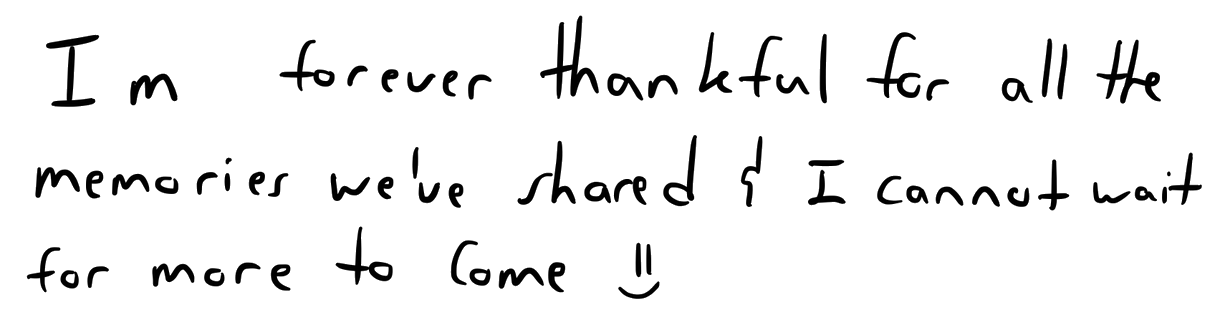 Im forever thankful for all the
memories we've shared & I cannot wait
for more to come :)